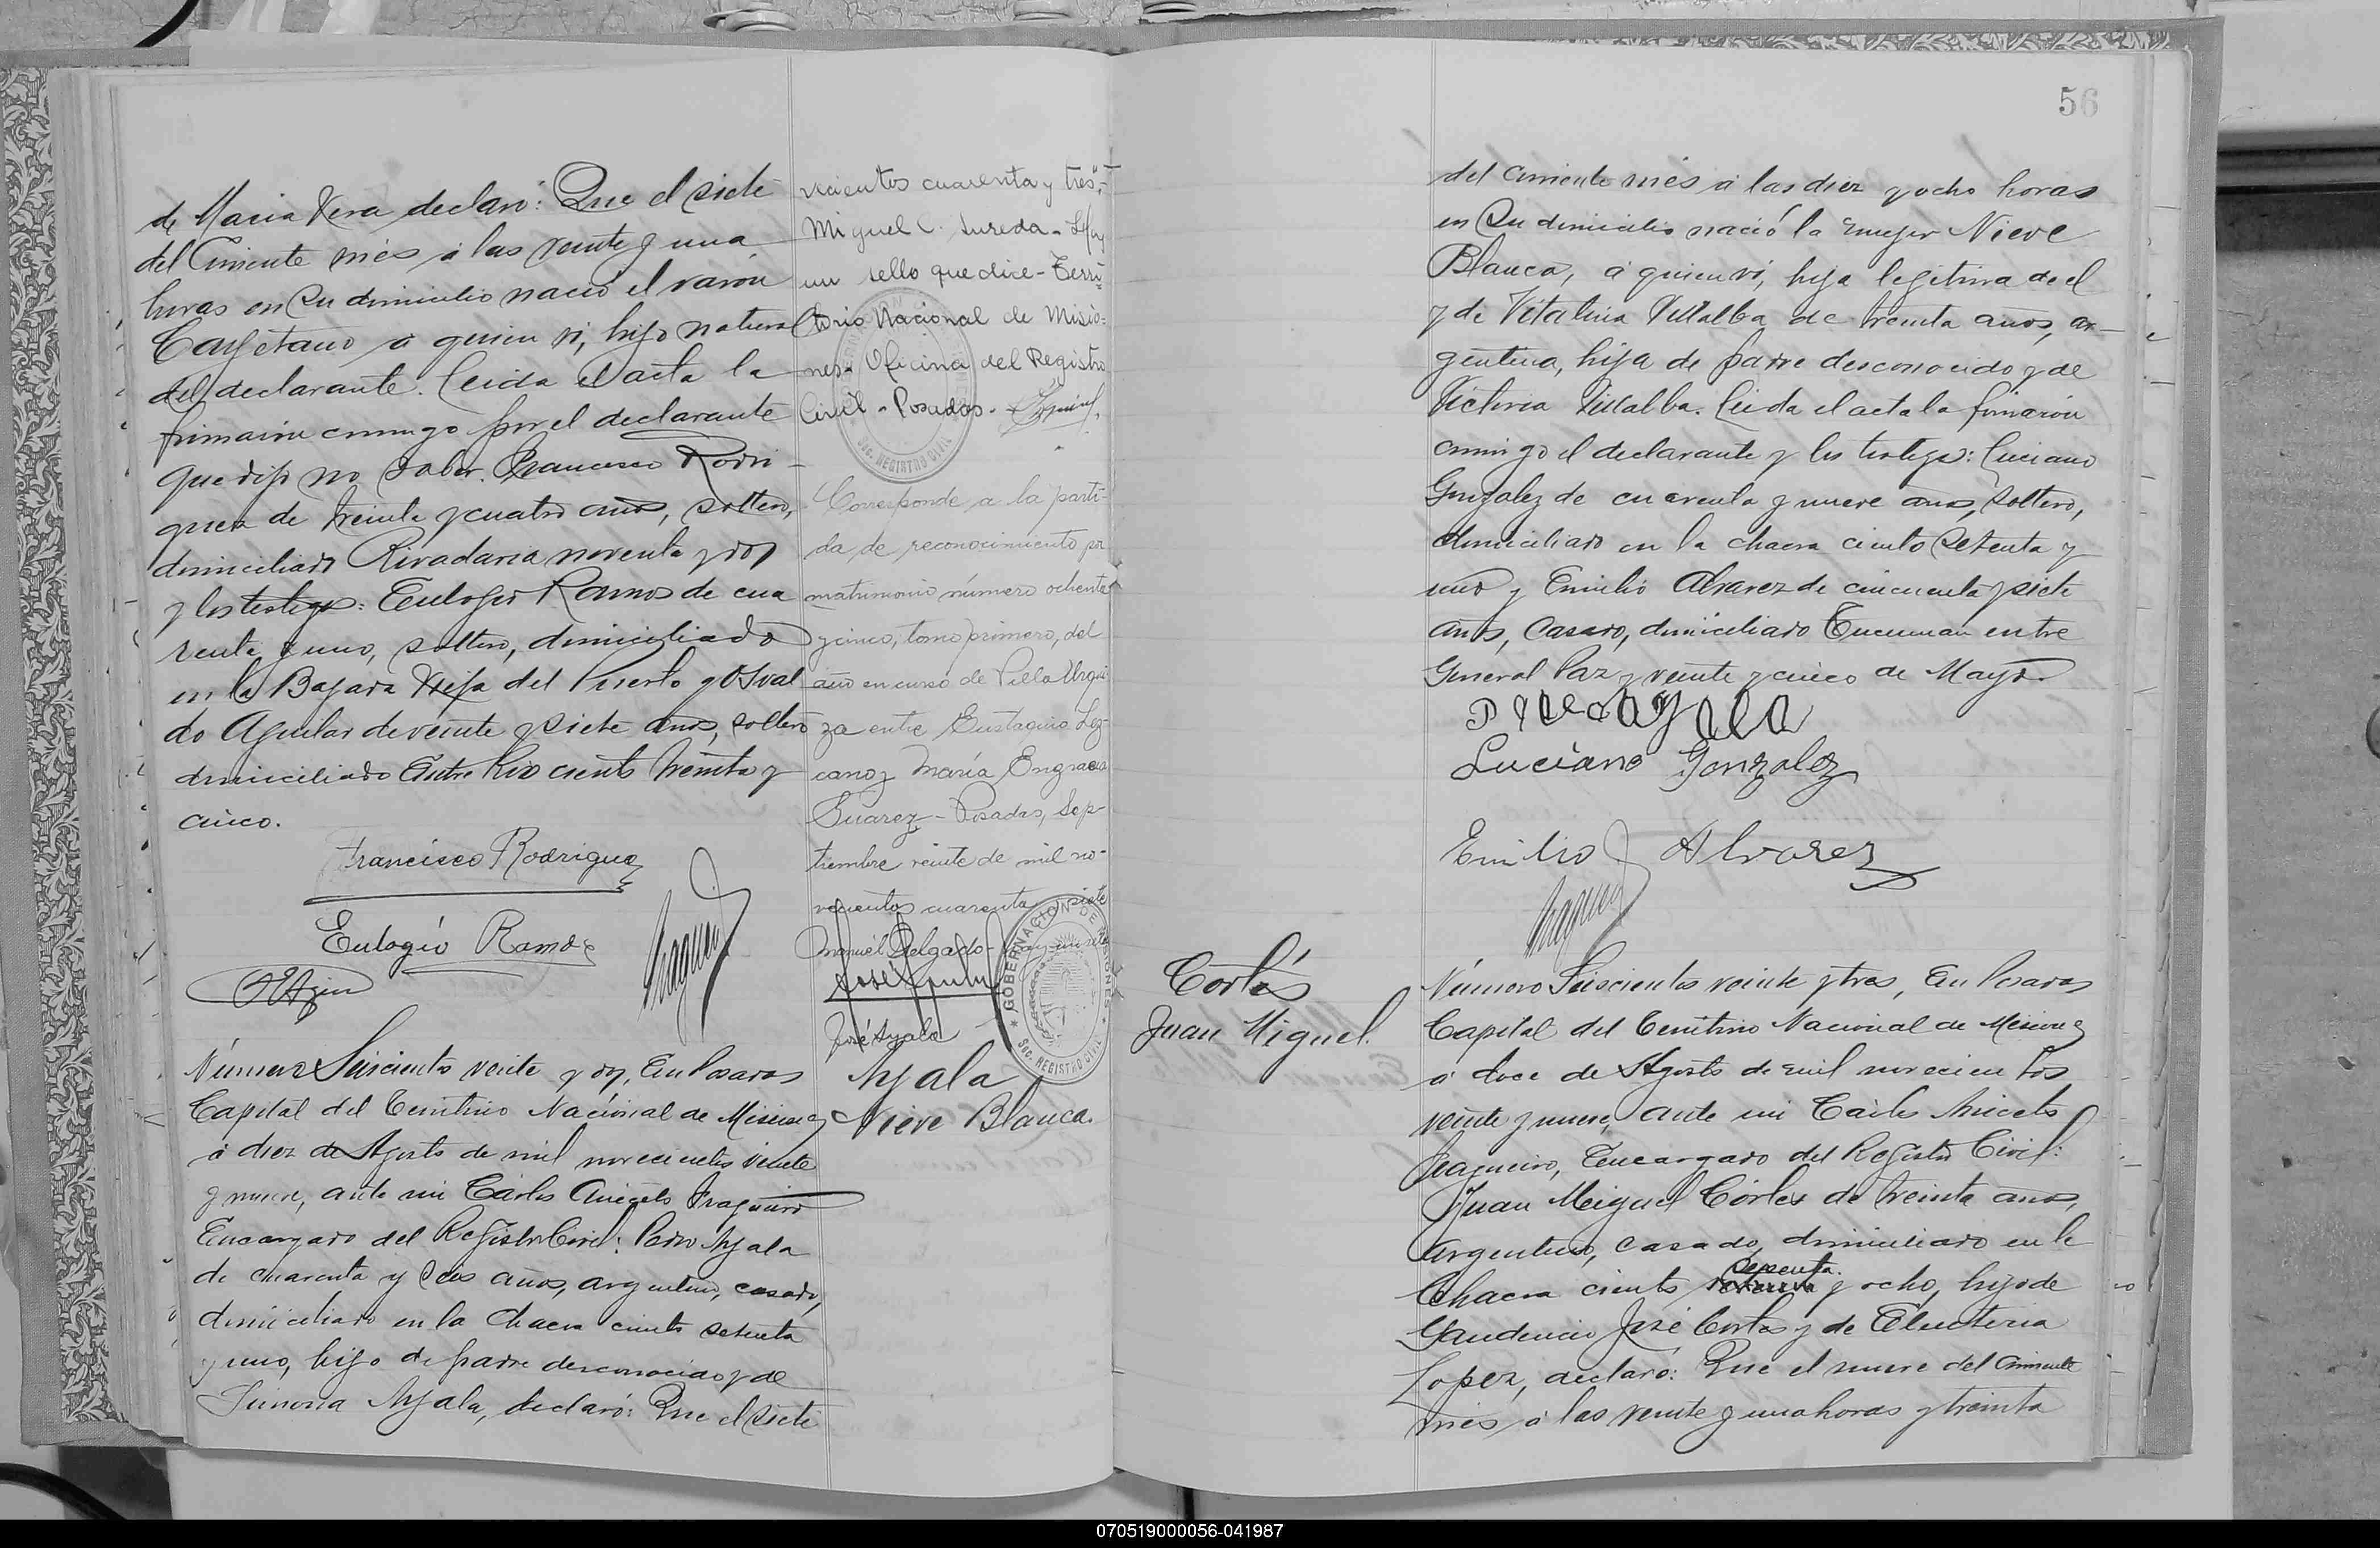 de Maria Vera declaró: Que el siete
del Corriente més á las veinte y una
horas en Su domicilio nació el varón
Cayetano á quien ví, hijo natural
del declarante. Leida el acta la
firmaron conmigo por el declarante
que dijo no saber. Francisco Rodri-
guez de treinta y cuatro años, soltero,
domiciliado Rivadavia noventa y dos
y los testigos: Eulogio Ramos de cua
renta y uno, soltero, domiciliado
en la Bajada Vieja del Puerto y Osval
do Aguilar de veinte y siete años, soltero
domiciliado Entre Rios ciento treinta y
cinco.
Francisco Rodriguez
Eulogio Ramos
Número Seiscientos veinte y dos, En Posadas
Capital del Territorio Nacional de Misiones
á diez de Agosto de mil novecientos veinte
y nueve, ante mi Carlos Aniceto Fragueiro
Encargado del Registro Civil: Pedro Ayala
de cuarenta y seis años, argentino, casado,
domiciliado en la Chacra ciento setenta
y uno, hijo de padre desconocido y de
Ayala, declaró: Que el siete
vecientos cuarenta y tres",-
Miguel C. Sureda - Hay
un sello que dice - Terri-
torio Nacional de Misio-
nes - Oficina del Registro
Civil - Posadas -
Corresponde a la parti-
da de reconocimiento por
matrimonio número ochenta
y cinco, tomo primero, del
año en curso de Villa Urqui
za entre Eustaquio Lez-
cano y María Engracia
Suarez - Posadas, Sep-
tiembre veinte de mil no-
vecientos cuarenta y siete
Manuel Delgado - Hay un sello
José Ayala
GOBERNACION DE MISIONES
SEC. REGISTRO CIVIL
Ayala
Nieve Blanca.
56
del corriente més á las diez y ocho horas
en Su domicilio nació la mujer Nieve
Blanca, á quien ví, hija legitima de el
y de Vitalina Villalba de treinta años, ar-
gentina, hija de padre desconocido y de
Victoria Villalba. Leida el acta la firmaron
conmigo el declarante y los testigos: Luciano
Gonzalez de cuarenta y nueve años, soltero,
domiciliado en la chacra ciento setenta y
uno y Emilio Alvarez de cincuenta y siete
años, casado, domiciliado Tucuman entre
General Paz y veinte y cinco de Mayo.
Luciano Gonzalez
Emilio Alvarez
Cortés
Juan Miguel.
Número Seiscientos veinte y tres, En Posadas
Capital del Territorio Nacional de Misiones
á doce de Agosto de mil novecientos
veinte y nueve, ante mi Carlos Aniceto
Fragueiro, Encargado del Registro Civil:
Juan Miguel Cortes de treinta años,
argentino, casado, domiciliado en la
Chacra ciento sesenta y ocho, hijo de
Gaudencio José Cortes y de Eleuteria
Lopez, declaró: Que el nueve del corriente
més á las veinte y una horas y treinta
070519000056-041987